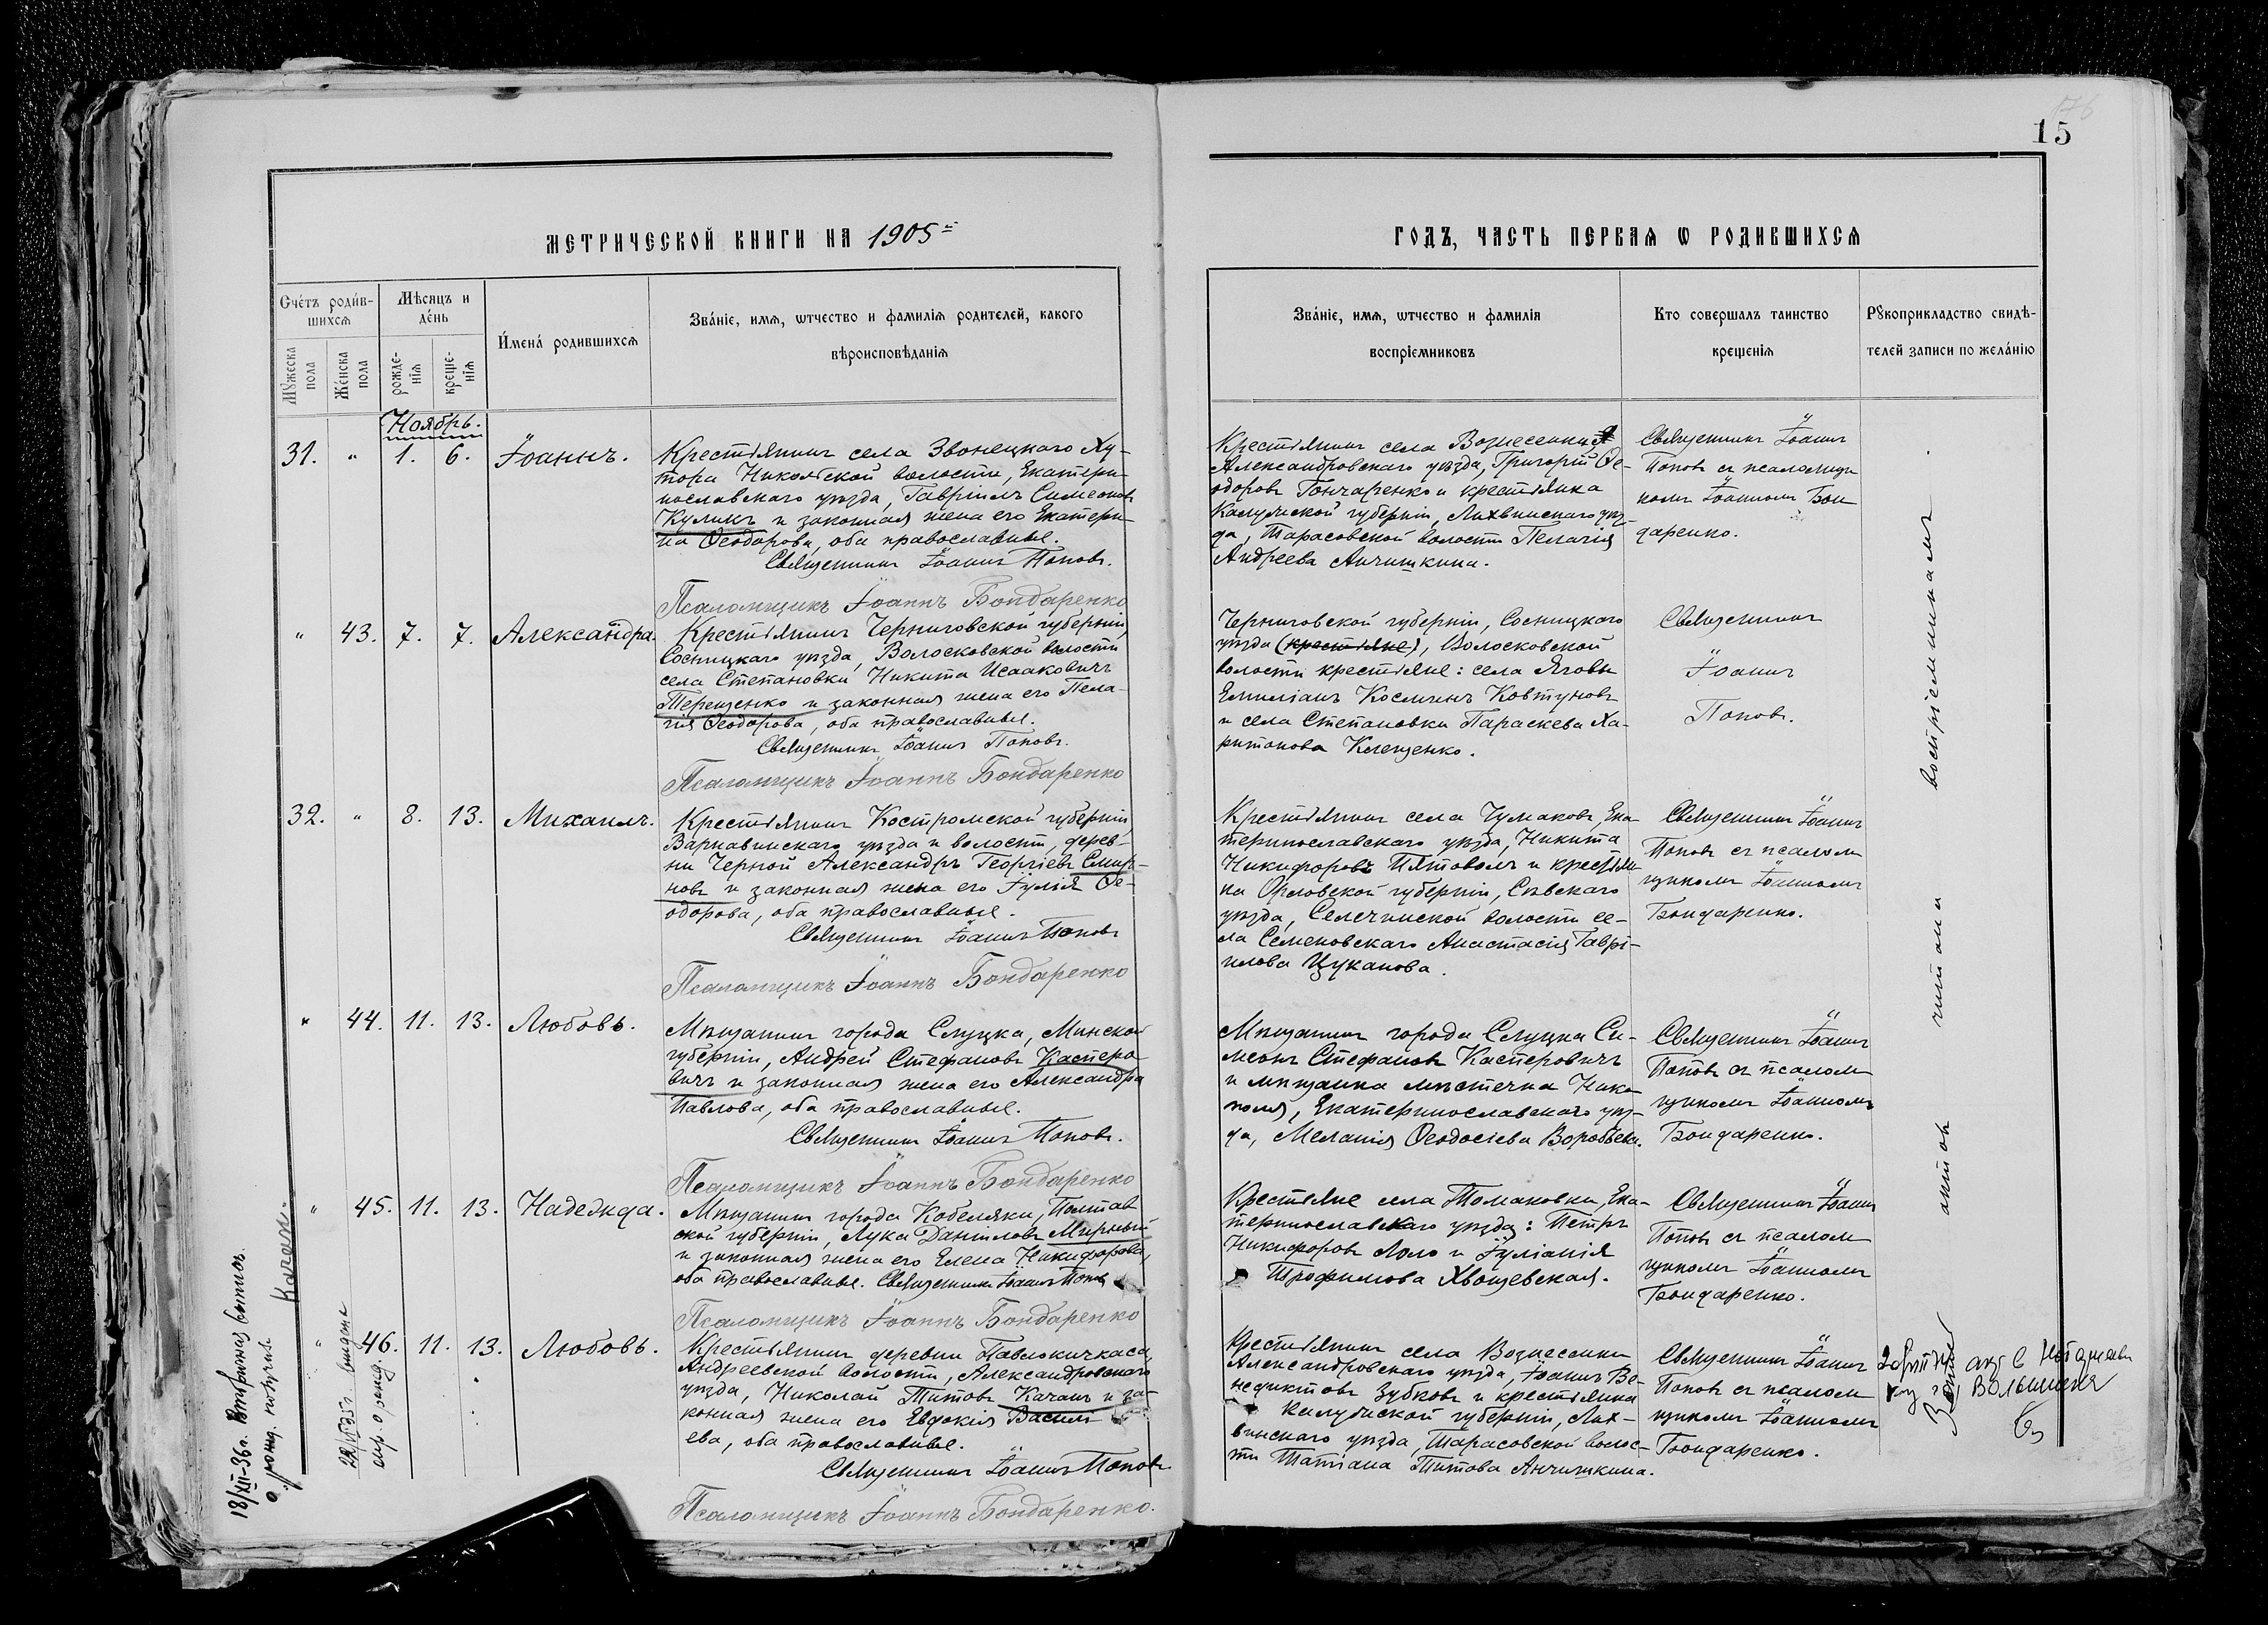 15
МЕТРИЧЕСКОЙ КНИГИ НА 1905
ГОДЪ, ЧАСТЬ ПЕРВАЯ Ѡ РОДИВШИХСЯ
Счетъ родив-
шихся
Мѣсяцъ и
день
Мужеска
пола
Женска
пола
рожде-
нія
креще-
нія
Имена родившихся
Званіе, имя, ѡтчество и фамилія родителей, какого
вѣроисповѣданія
Званіе, имя, ѡтчество и фамилія
воспріемниковъ
Кто совершалъ таинство
крещенія
Рукоприкладство свидѣ-
телей записи по желанію
Ноябрь.
31. " 1. 6. Іоаннъ.
Крестьянинъ села Звонецкаго Ху-
тора Никольской волости, Екатери-
нославскаго уѣзда, Гавріилъ Симеоновъ
Куликъ и законная жена его Екатери-
на Ѳеодорова, оба православные.
Священникъ Іоаннъ Поповъ.
Псаломщикъ Іоаннъ Бондаренко
Крестьянинъ села Вознесенки
Александровскаго уѣзда, Григорій Ѳе-
одоровъ Гончаренко и крестьянка
Калужской губерніи, Лихвинскаго уѣз-
да, Тарасовской волости Пелагія
Андреева Анчишкина.
Священникъ Іоаннъ
Поповъ съ псаломщи
комъ Іоанномъ Бон
даренко.
" 43. 7. 7. Александра.
Крестьянинъ Черниговской губерніи,
Сосницкаго уѣзда, Волосковской волости
села Степановки Никита Исааковичъ
Терещенко и законная жена его Пела-
гія Ѳеодорова, оба православные.
Священникъ Іоаннъ Поповъ.
Псаломщикъ Іоаннъ Бондаренко
Черниговской губерніи, Сосницкаго
уѣзда (крестьяне), Волосковской
волости крестьяне: села Ядовы
Емиліанъ Косминъ Ковтуновъ
и села Степановки Параскева Ха-
ритонова Клещенко.
Священникъ
Іоаннъ
Поповъ.
32. " 8. 13. Михаилъ.
Крестьянинъ Костромской губерніи,
Варнавинскаго уѣзда и волости, дерев-
ни Черной Александръ Георгіевъ Смир-
новъ и законная жена его Іулія Ѳе-
одорова, оба православные.
Священникъ Іоаннъ Поповъ
Псаломщикъ Іоаннъ Бондаренко
Крестьянинъ села Чумаковъ, Ека-
теринославскаго уѣзда, Никита
Никифоровъ и крестьян
ка Орловской губерніи, Сѣвскаго
уѣзда, Селечинской волости се-
ла Семеновскаго Анастасія Гаврі-
илова Цуканова.
Священникъ Іоаннъ
Поповъ съ псалом
щикомъ Іоанномъ
Бондаренко.
" 44. 11. 13. Любовь.
Мѣщанинъ города Слуцка, Минской
губерніи, Андрей Стефановъ Касперо
вичъ и законная жена его Александра
Павлова, оба православные.
Священникъ Іоаннъ Поповъ.
Псаломщикъ Іоаннъ Бондаренко
Мѣщанинъ города Слуцка Си-
меонъ Стефановъ Касперовичъ
и мѣщанка мѣстечка Нико
поля, Екатеринославскаго уѣз-
да, Меланія Ѳеодосіева Воробьева.
Священникъ Іоаннъ
Поповъ съ псалом
щикомъ Іоанномъ
Бондаренко.
" 45. 11. 13. Надежда.
Мѣщанинъ города Кобеляки, Полтав
ской губерніи, Лука Даниловъ Мирный
и законная жена его Елена Никифорова,
оба православные. Священникъ Іоаннъ Поповъ
Псаломщикъ Іоаннъ Бондаренко
Крестьяне села Томаковки, Ека-
теринославскаго уѣзда: Петръ
Никифоровъ Лоло и Іуліанія
Трофимова Хвощевская.
Священникъ Іоаннъ
Поповъ съ псалом
щикомъ Іоанномъ
Бондаренко.
" 46. 11. 13. Любовь.
Крестьянинъ деревни Павлокичкаса,
Андреевской волости, Александровскаго
уѣзда, Николай Титовъ Качанъ и за-
конная жена его Евдокія Василь
ева, оба православные.
Священникъ Іоаннъ Поповъ
Псаломщикъ Іоаннъ Бондаренко.
Крестьянинъ села Вознесенки
Александровскаго уѣзда, Іоаннъ Ве-
недиктовъ Зубковъ и крестьянка
Калужской губерніи, Лих-
винскаго уѣзда, Тарасовской волос-
ти Татіана Титова Анчишкина.
Священникъ Іоаннъ
Поповъ съ псалом
щикомъ Іоанномъ
Бондаренко.
актовъ читана воспріемникамъ
18/XII-36г. Вторичная выпись
о рожд. получив
Качан.
22/VI 35г. выдана
спр. о рожд.